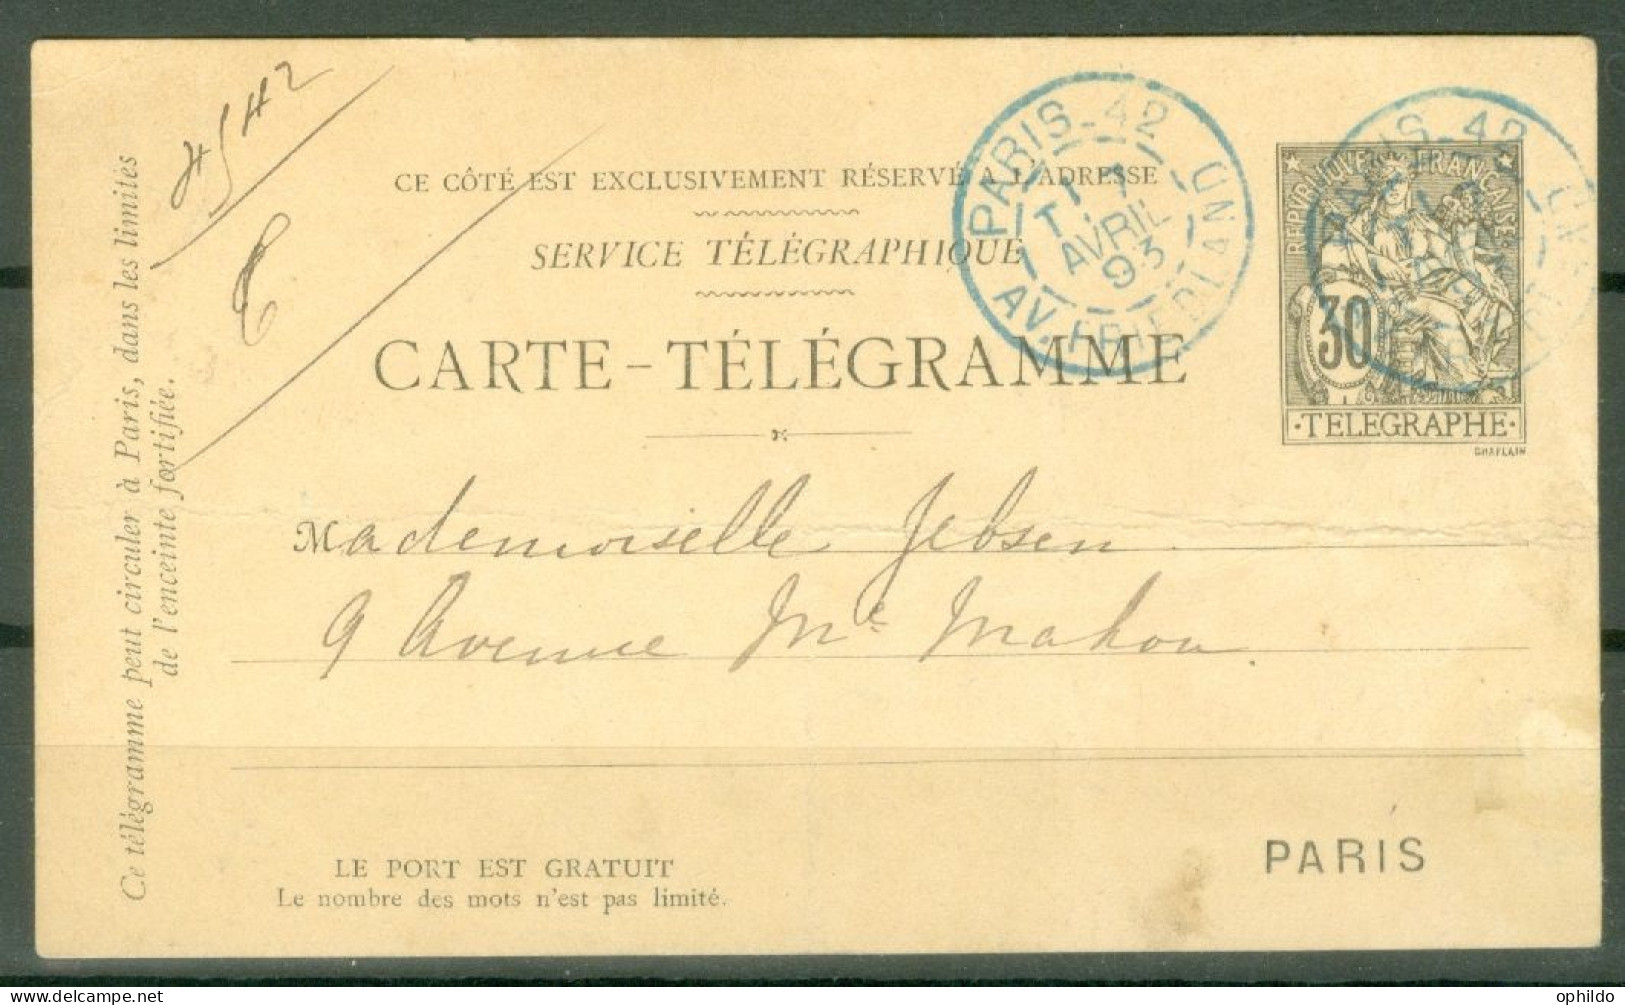 CE CÔTÉ EST EXCLUSIVEMENT RÉSERVÉ A L'ADRESSE
SERVICE TÉLÉGRAPHIQUE
CARTE-TÉLÉGRAMME
PARIS-42
AVRIL
93
AV. FRIEDLAND
REPVBLIQVE FRANÇAISE
30
·TELEGRAPHE·
CHAPLAIN
Mademoiselle Jebsen
9 Avenue Mc Mahon.
PARIS
LE PORT EST GRATUIT
Le nombre des mots n'est pas limité.
Ce télégramme peut circuler à Paris, dans les limites
de l'enceinte fortifiée.
delcampe.net
ophildo